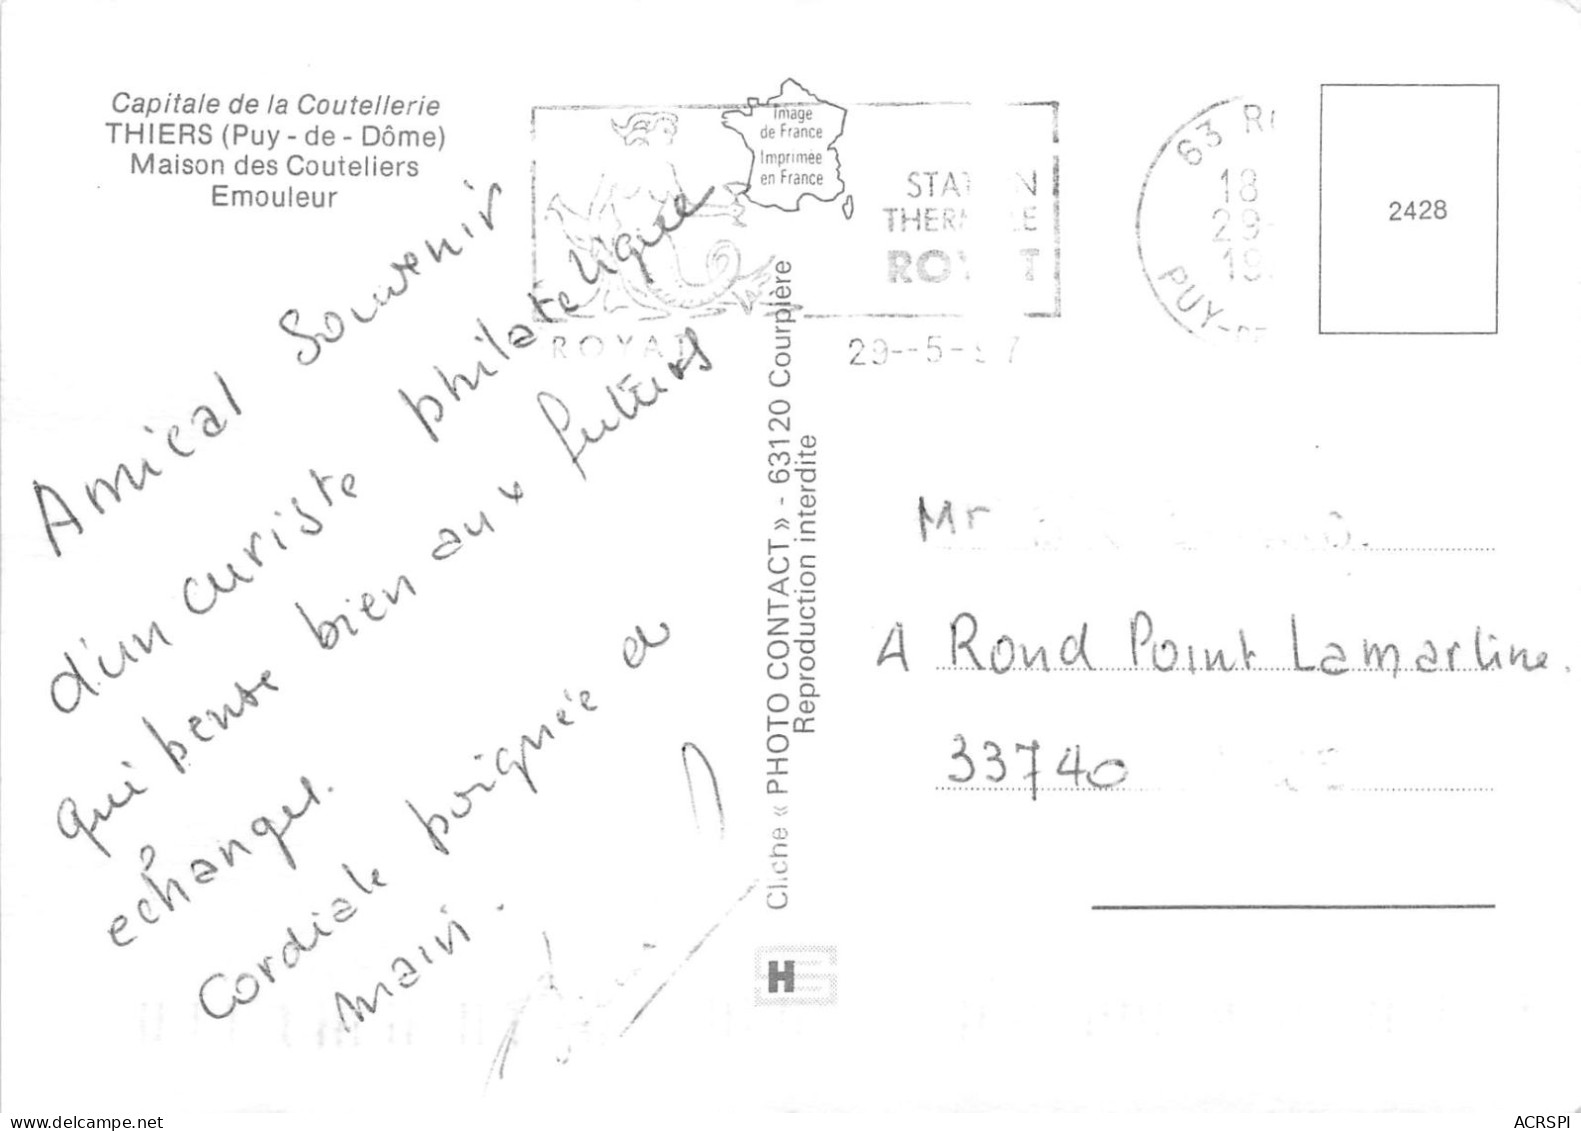 Capitale de la Coutellerie
THIERS (Puy - de - Dôme)
Maison des Couteliers
Emouleur
Image
de France
Imprimée
en France
ROYAT
STATION
THERMALE
ROYAT
29--5-
63
18
29-
19
PUY-DE
2428
Amical Souvenir
d'un curiste philatelique
qui pense bien aux futurs
echanges.
Cordiale poignée de
main.
Cliche « PHOTO CONTACT » - 63120 Courpière
Reproduction interdite
Mr
A Rond Point Lamartine.
33740
H
ACRSPI